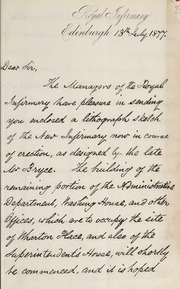 Royal Infirmary
Edinburgh 13th July 1877.
Dear Sir,
The Managers of the Royal
Infirmary have pleasure in sending
you enclosed a lithograph sketch
of the New Infirmary now in course
of erection, as designed by the late
Mr Bryce. The building of the
remaining portion of the Administrative
Department, Washing House, and other
Offices, which are to occupy the site
of Wharton Place, and also of the
Superintendents House, will shortly
be commenced, and it is hoped